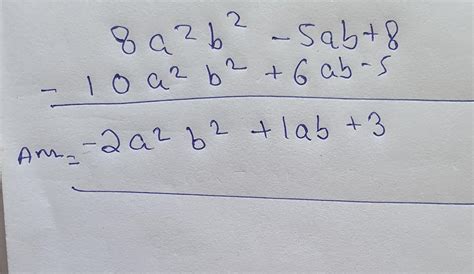 8a²b² - 5ab + 8
- 10a²b² + 6ab - 5
Ans = -2a²b² + 1ab + 3